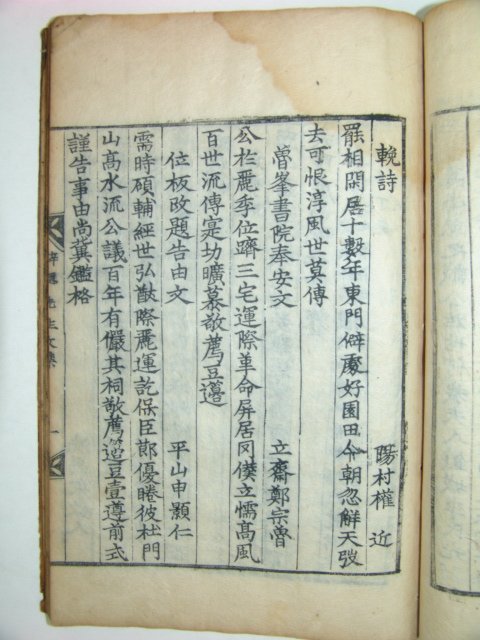 輓詩 陽村 權 近
罷相閑居十數年東門僻處好園田今朝忽解天弢
去可恨淳風世莫傳
魯峯書院奉安文 立齋鄭宗魯
公於麗季位躋三宅運際革命屏居罔僕立懦高風
百世流傳寔切曠慕敬薦豆籩
位板改題告由文 平山申顯仁
需時碩輔經世弘猷際麗運訖保臣節優睠彼杜門
山高水流公議百年有儼其祠敬薦籩豆壹遵前式
謹告事由尚冀鑑格
先生文集 一